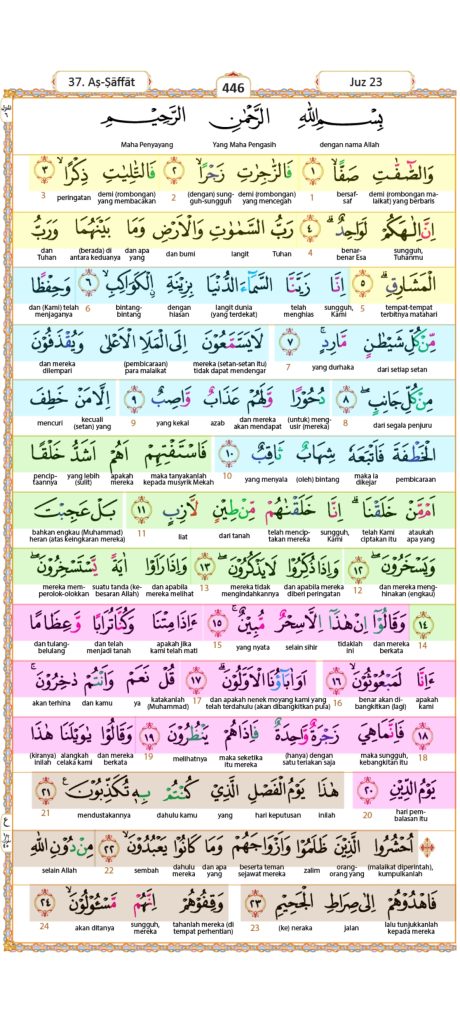 37. Aṣ-Ṣāffāt
446
Juz 23
بِسْمِ اللّٰهِ الرَّحْمٰنِ الرَّحِيْمِ
dengan nama Allah Yang Maha Pengasih Maha Penyayang
وَالصّٰۤفّٰتِ صَفًّاۙ ١ فَالزّٰجِرٰتِ زَجْرًاۙ ٢ فَالتّٰلِيٰتِ ذِكْرًاۙ ٣
demi (rombongan malaikat) yang berbaris bersaf-saf 1 demi (rombongan) yang mencegah (dengan) sungguh-sungguh 2 demi (rombongan) yang membacakan peringatan 3
اِنَّ اِلٰهَكُمْ لَوَاحِدٌۗ ٤ رَبُّ السَّمٰوٰتِ وَالْاَرْضِ وَمَا بَيْنَهُمَا وَرَبُّ
sungguh, Tuhanmu benar-benar Esa 4 Tuhan langit dan bumi dan apa yang (berada) di antara keduanya dan Tuhan
الْمَشَارِقِۗ ٥ اِنَّا زَيَّنَّا السَّمَاۤءَ الدُّنْيَا بِزِيْنَةِ ِۨالْكَوَاكِبِۙ ٦ وَحِفْظًا
tempat-tempat terbitnya matahari 5 sungguh, Kami telah menghias langit dunia (yang terdekat) dengan hiasan bintang-bintang 6 dan (Kami) telah menjaganya
مِّنْ كُلِّ شَيْطٰنٍ مَّارِدٍۚ ٧ لَا يَسَّمَّعُوْنَ اِلَى الْمَلَاِ الْاَعْلٰى وَيُقْذَفُوْنَ
dari setiap setan yang durhaka 7 mereka (setan-setan itu) tidak dapat mendengar (pembicaraan) para malaikat dan mereka dilempari
مِنْ كُلِّ جَانِبٍۖ ٨ دُحُوْرًا وَّلَهُمْ عَذَابٌ وَّاصِبٌۙ ٩ اِلَّا مَنْ خَطِفَ
dari segala penjuru 8 (untuk) mengusir (mereka) dan mereka akan mendapat azab yang kekal 9 kecuali (setan) yang mencuri
الْخَطْفَةَ فَاَتْبَعَهٗ شِهَابٌ ثَاقِبٌ ١٠ فَاسْتَفْتِهِمْ اَهُمْ اَشَدُّ خَلْقًا
pembicaraan maka ia dikejar (oleh) bintang yang menyala 10 maka tanyakanlah kepada musyrik Mekah apakah mereka yang lebih (sulit) penciptaannya
اَمْ مَّنْ خَلَقْنَاۗ اِنَّا خَلَقْنٰهُمْ مِّنْ طِيْنٍ لَّازِبٍ ١١ بَلْ عَجِبْتَ
ataukah apa yang telah Kami ciptakan itu sungguh, Kami telah menciptakan mereka dari tanah liat 11 bahkan engkau (Muhammad) heran (atas keingkaran mereka)
وَيَسْخَرُوْنَۖ ١٢ وَاِذَا ذُكِّرُوْا لَا يَذْكُرُوْنَۖ ١٣ وَاِذَا رَاَوْا اٰيَةً يَّسْتَسْخِرُوْنَۖ
dan mereka menghinakan (engkau) 12 dan apabila mereka diberi peringatan mereka tidak mengindahkannya 13 dan apabila mereka melihat suatu tanda (kebesaran Allah) mereka memperolok-olokkan
١٤ وَقَالُوْٓا اِنْ هٰذَآ اِلَّا سِحْرٌ مُّبِيْنٌۚ ١٥ ءَاِذَا مِتْنَا وَكُنَّا تُرَابًا وَّعِظَامًا
14 dan mereka berkata tidaklah ini selain sihir yang nyata 15 apakah jika kami telah mati dan telah menjadi tanah dan tulang-belulang
ءَاِنَّا لَمَبْعُوْثُوْنَۙ ١٦ اَوَاٰبَاۤؤُنَا الْاَوَّلُوْنَۗ ١٧ قُلْ نَعَمْ وَاَنْتُمْ دٰخِرُوْنَۚ
apakah kami benar akan dibangkitkan (lagi) 16 dan apakah nenek moyang kami yang telah terdahulu (akan dibangkitkan pula) 17 katakanlah (Muhammad) ya dan kamu akan terhina
١٨ فَاِنَّمَا هِيَ زَجْرَةٌ وَّاحِدَةٌ فَاِذَا هُمْ يَنْظُرُوْنَ ١٩ وَقَالُوْا يٰوَيْلَنَا هٰذَا
18 maka sungguh, kebangkitan itu (hanya) dengan satu teriakan saja maka seketika itu mereka melihatnya 19 dan mereka berkata alangkah celaka kami (kiranya) inilah
يَوْمُ الدِّيْنِ ٢٠ هٰذَا يَوْمُ الْفَصْلِ الَّذِيْ كُنْتُمْ بِهٖ تُكَذِّبُوْنَ ࣖ ٢١
hari pembalasan itu 20 inilah hari keputusan yang dahulu kamu mendustakannya 21
۞ اُحْشُرُوا الَّذِيْنَ ظَلَمُوْا وَاَزْوَاجَهُمْ وَمَا كَانُوْا يَعْبُدُوْنَۙ ٢٢ مِنْ دُوْنِ اللّٰهِ
(malaikat diperintah), kumpulkanlah orang-orang yang zalim beserta teman sejawat mereka dan apa yang dahulu mereka sembah 22 selain Allah
فَاهْدُوْهُمْ اِلٰى صِرَاطِ الْجَحِيْمِ ٢٣ وَقِفُوْهُمْ اِنَّهُمْ مَّسْـُٔوْلُوْنَۙ ٢٤
lalu tunjukkanlah kepada mereka jalan (ke) neraka 23 tahanlah mereka (di tempat perhentian) sungguh, mereka akan ditanya 24